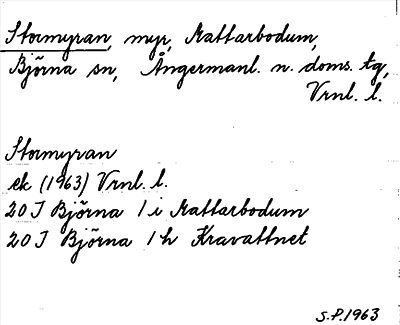 Stormyran, myr, Mattarbodum,
Björna sn, Ångermanl. n. doms. tg,
Vrnl. l.
Stormyran
ek (1963) Vrnl. l.
20 J Björna 1 i Mattarbodum
20 J Björna 1 h Kravattnet
S.P. 1963